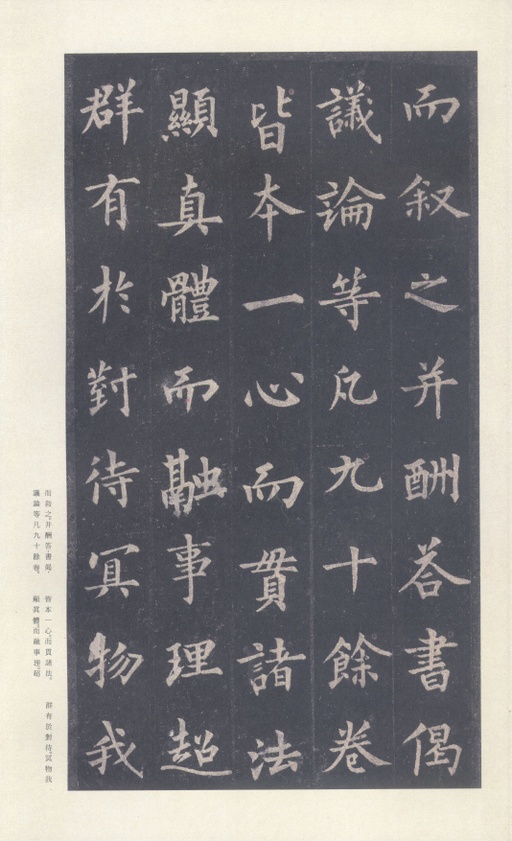 而叙之并酬荅書偈
議論等凡九十餘卷
皆本一心而貫諸法
顯真體而融事理超
群有於對待冥物我
而敍之，并酬答書偈·
議論等凡九十餘卷。
皆本一心，而貫諸法，
顯眞體，而融事理，超
群有於對待，冥物我·